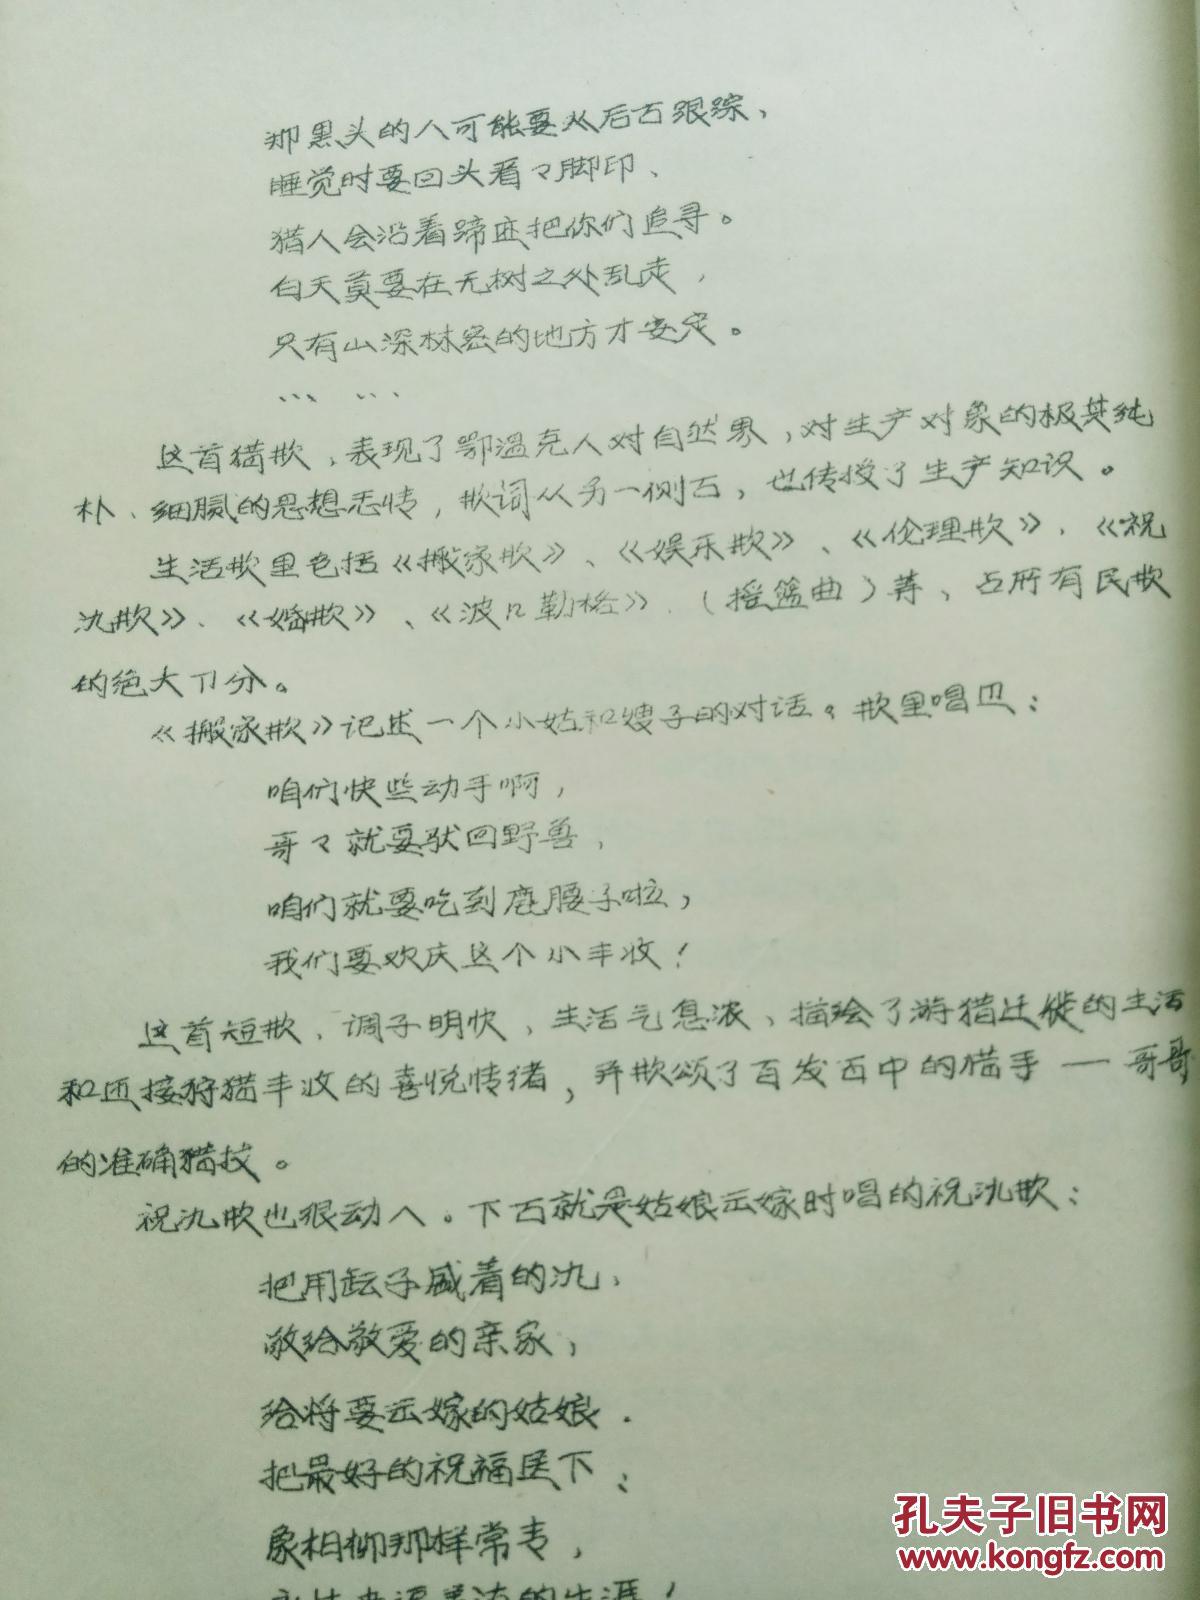 那黑头的人可能要从后面跟踪、
睡觉时要回头看々脚印、
猎人会沿着蹄迹把你们追寻。
白天莫要在无树之处乱走，
只有山深林密的地方才安定。
… …
这首猎歌，表现了鄂温克人对自然界，对生产对象的极其纯
朴、细腻的思想感情，歌词从另一侧面，也传授了生产知识。
生活歌里包括《搬家歌》、《娱乐歌》、《伦理歌》、《祝
氿歌》、《婚歌》、《波口勒格》、（摇篮曲）等、占所有民歌
的绝大卩分。
《搬家歌》记述一个小姑和嫂子的对话。歌里唱叿：
咱们快些动手啊，
哥々就要驮回野兽，
咱们就要吃到鹿腰子啦，
我们要欢庆这个小丰收！
这首短歌、调子明快、生活气息浓、描绘了游猎迁徙的生活
和迎接狩猎丰收的喜悦情绪，并歌颂了百发百中的猎手一哥哥
的准确猎技。
祝氿歌也很动人。下面就是姑娘出嫁时唱的祝氿歌：
把用坛子盛着的氿、
敬给敬爱的亲家，
给将要出嫁的姑娘．
把最好的祝福留下；
象柏柳那样常青，
的生涯！
孔夫子旧书网
www.kongfz.com